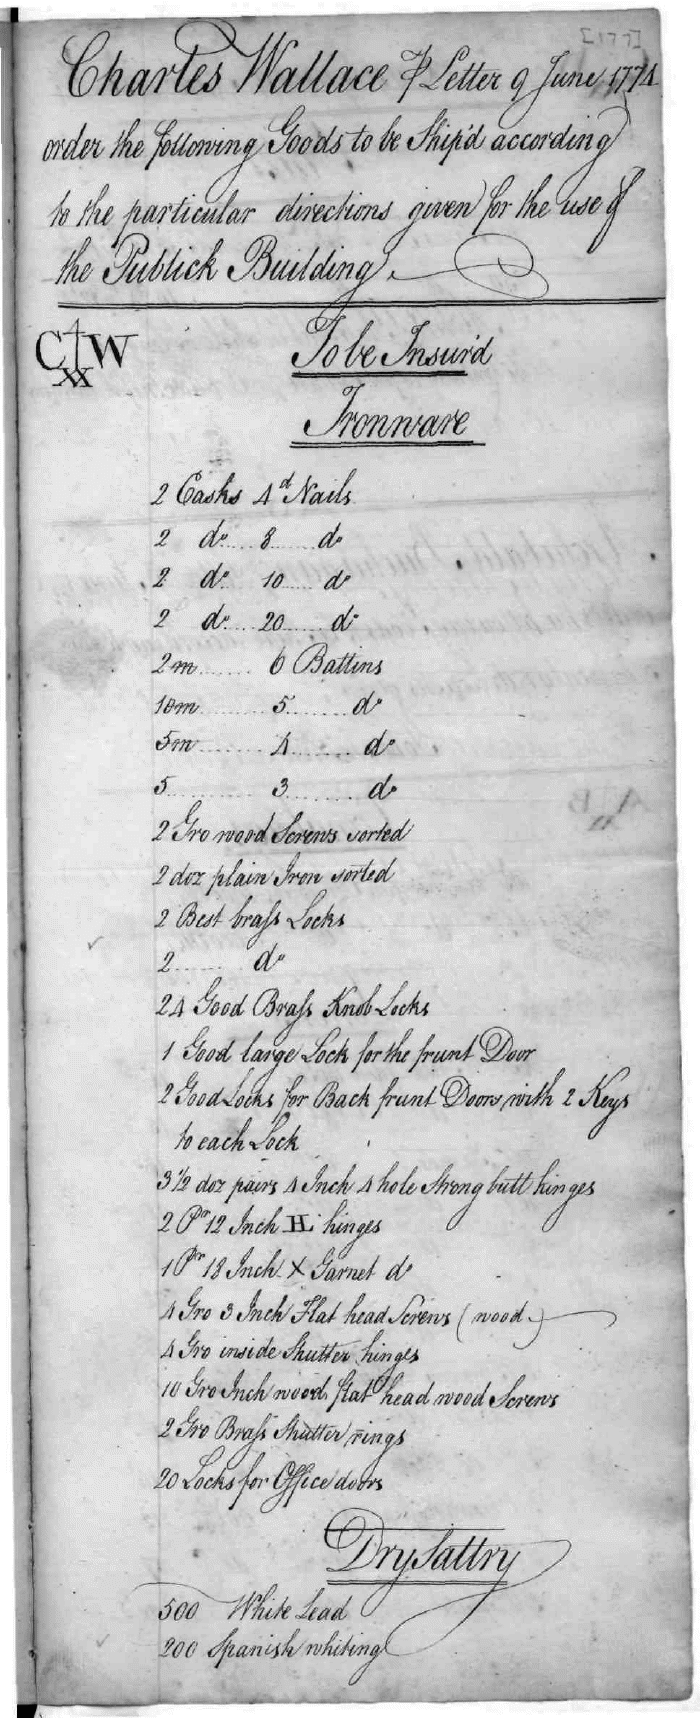 [177]
Charles Wallace ⅌ Letter 9 June 1774
order the following Goods to be Ship'd according
to the particular directions given for the use of
the Publick Building.
C W
XX
To be Insur'd
Ironware
2 Casks 4d Nails
2 do. 8 do
2 do. 10 do
2 do. 20 do
2m 6 Battins
10m 5 do
5m 4 do
5 3 do
2 Gro wood Screws sorted
2 doz plain Iron sorted
2 Best brass Locks
2 do
24 Good Brass Knob Locks
1 Good large Lock for the frunt Door
2 Good Locks for Back frunt Doors with 2 Keys
to each Lock
3½ doz pairs 4 Inch 4 hole Strong butt hinges
2 Pr 12 Inch HL hinges
1 Pr 18 Inch X Garnet do
4 Gro 3 Inch Flat head Screws (wood)
4 Gro inside Shutter hinges
10 Gro Inch wood flat head wood Screws
2 Gro Brass Shutter rings
20 Locks for Office doors
DrySaltry
500 White Lead
200 Spanish whiting